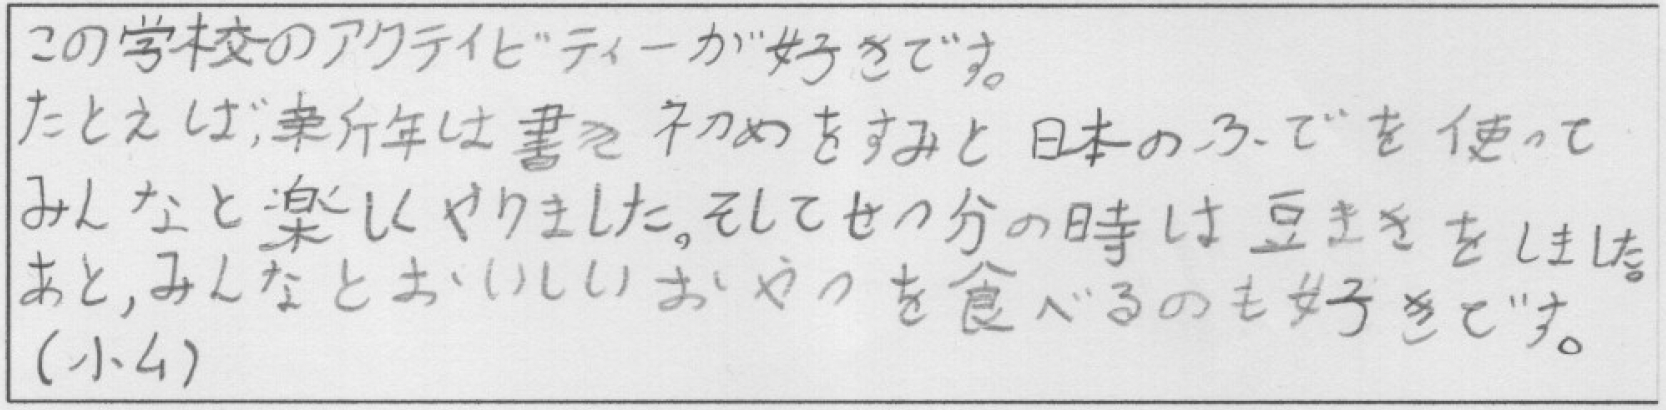 この学校のアクティビティーが好きです。
たとえば、新年は書き初めをすみと日本のふでを使って
みんなと楽しくやりました。そしてせつ分の時は豆まきをしました。
あと、みんなとおいしいおやつを食べるのも好きです。
(小4)